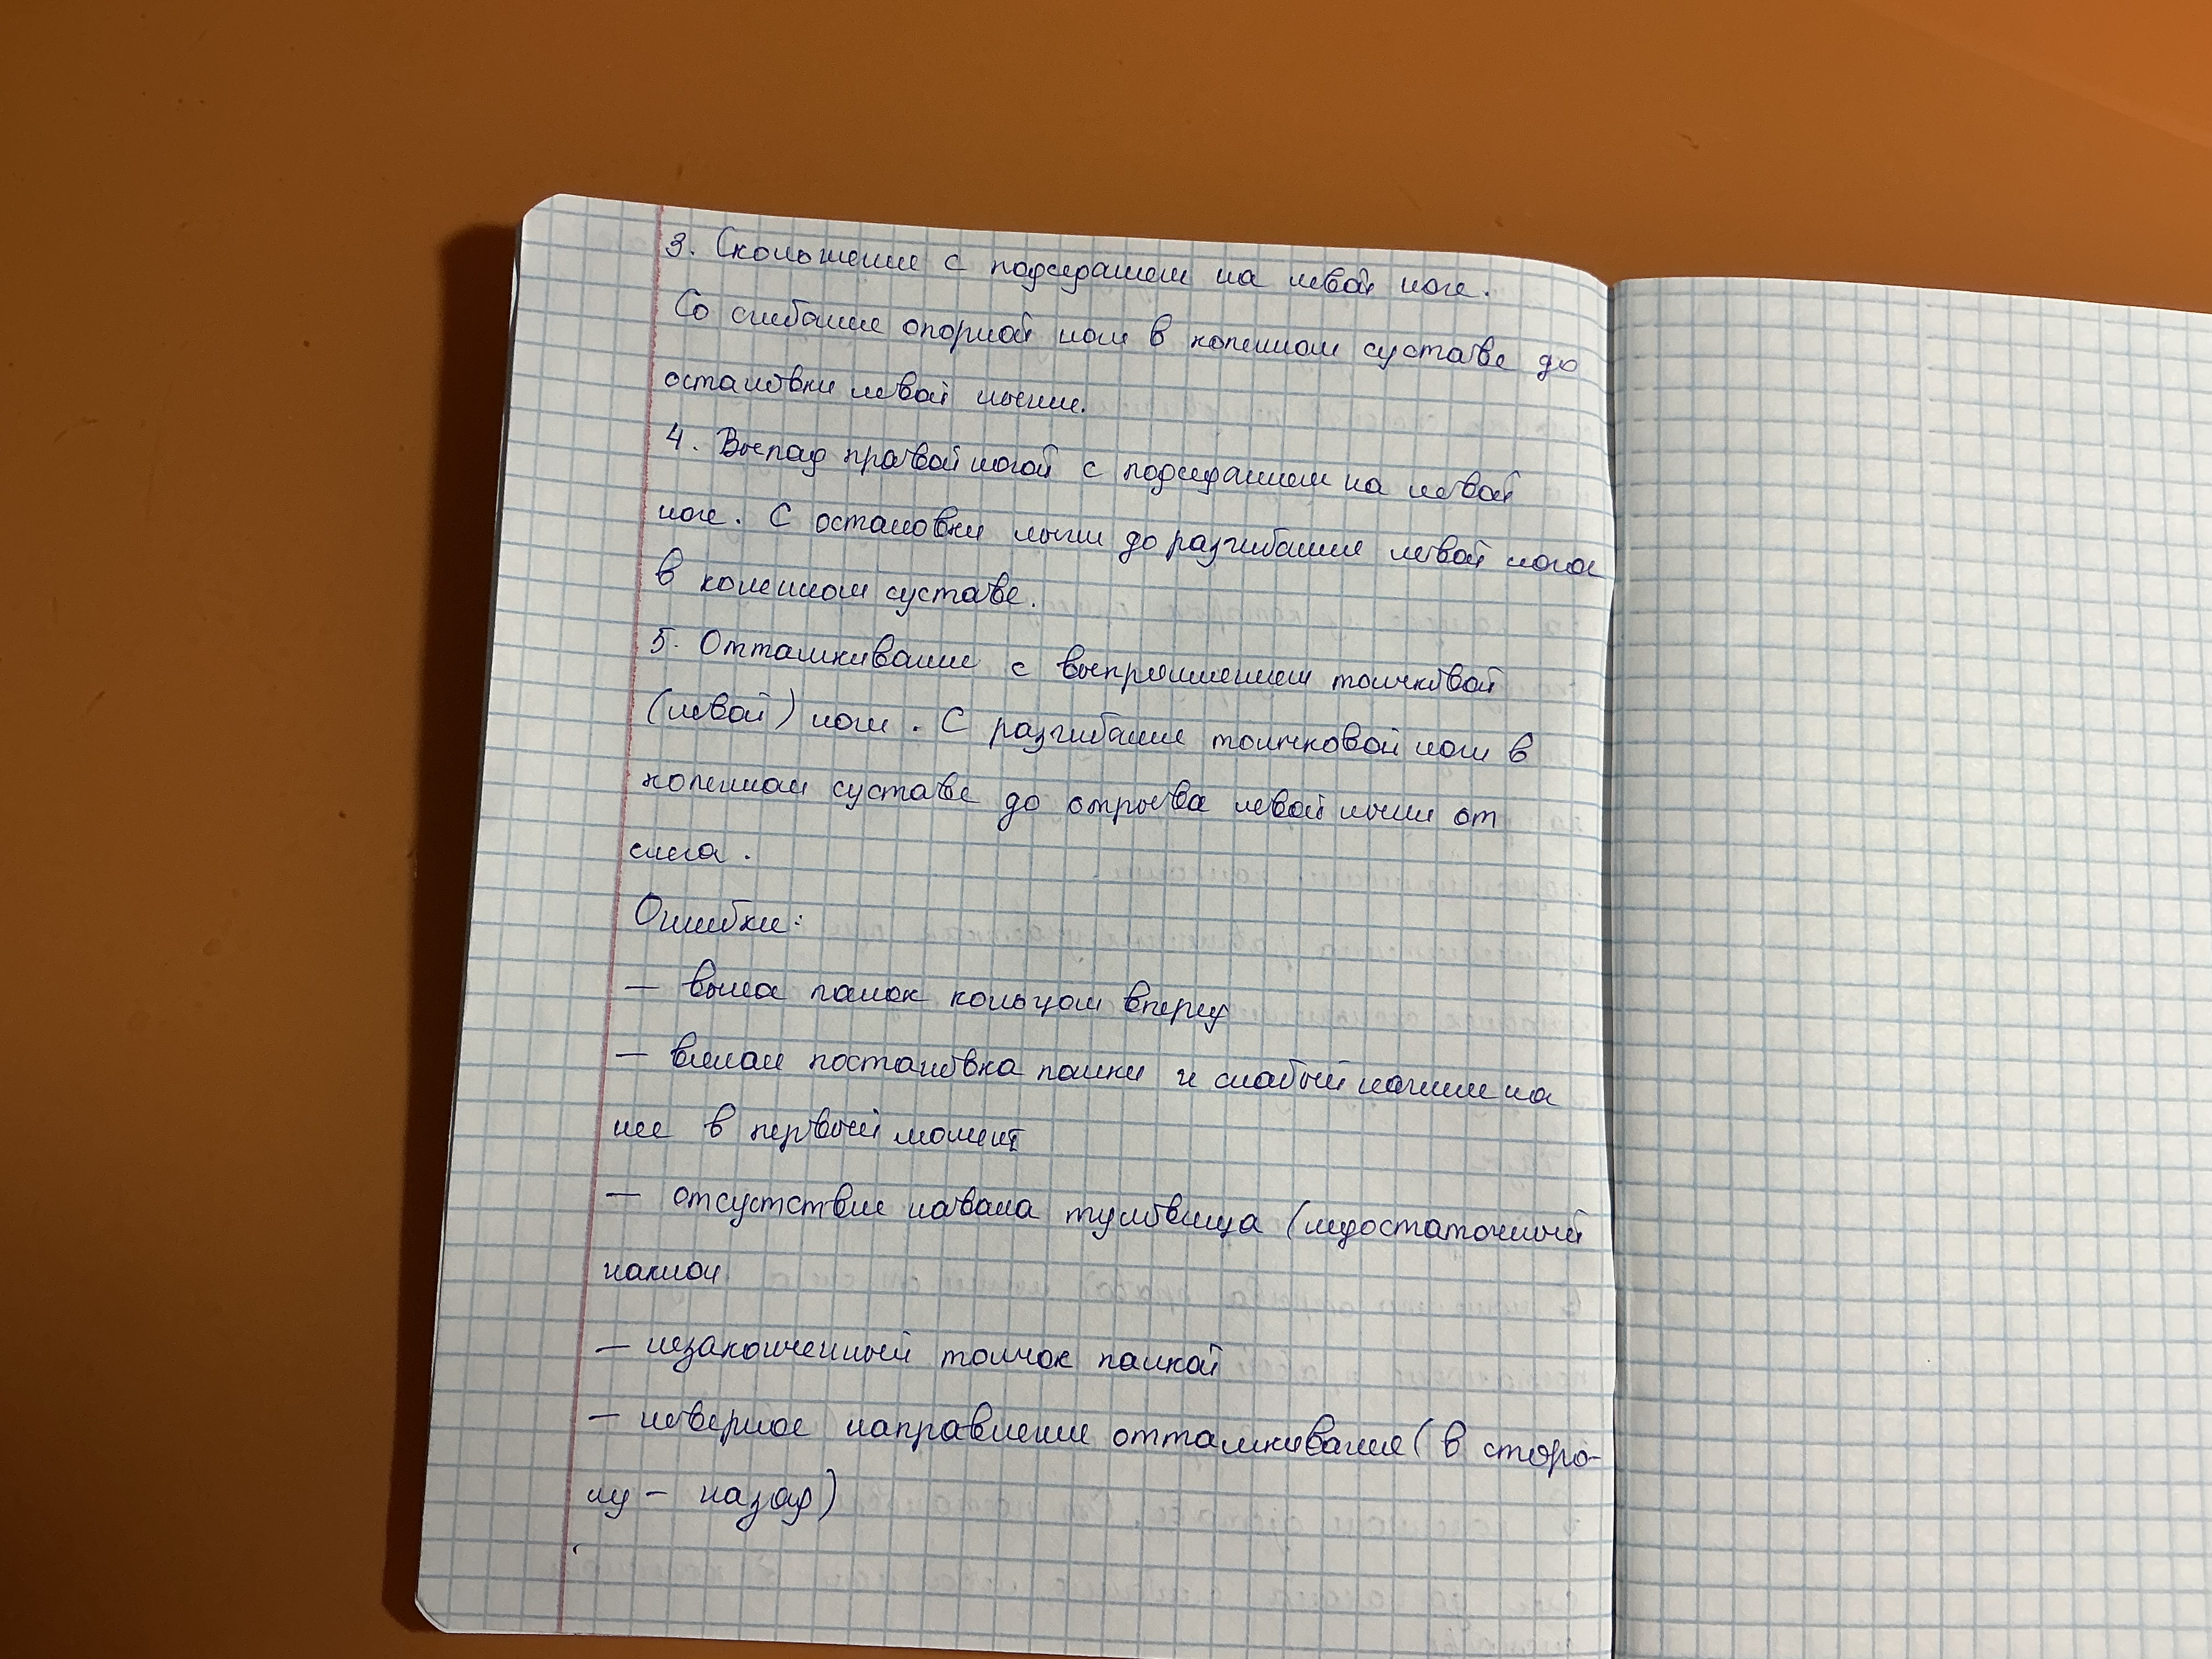 3. Скольжение с подседанием на левой ноге.
Со сгибание опорной ноги в коленном суставе до
остановки левой лыжи.
4. Выпад правой ногой с подседанием на левой
ноге. С остановки лыжи до разгибание левой ноги
в коленном суставе.
5. Отталкивание с выпрямлением толчковой
(левой) ноги. С разгибание толчковой ноги в
коленном суставе до отрыва левой лыжи от
снега.
Ошибки:
— вынос палок кольцом вперед
— вялая постановка палки и слабый нажим на
нее в первый момент
— отсутствие навала туловища (недостаточный
наклон
— незаконченный толчок палкой
— неверное направление отталкивание (в сторо-
ну - назад)